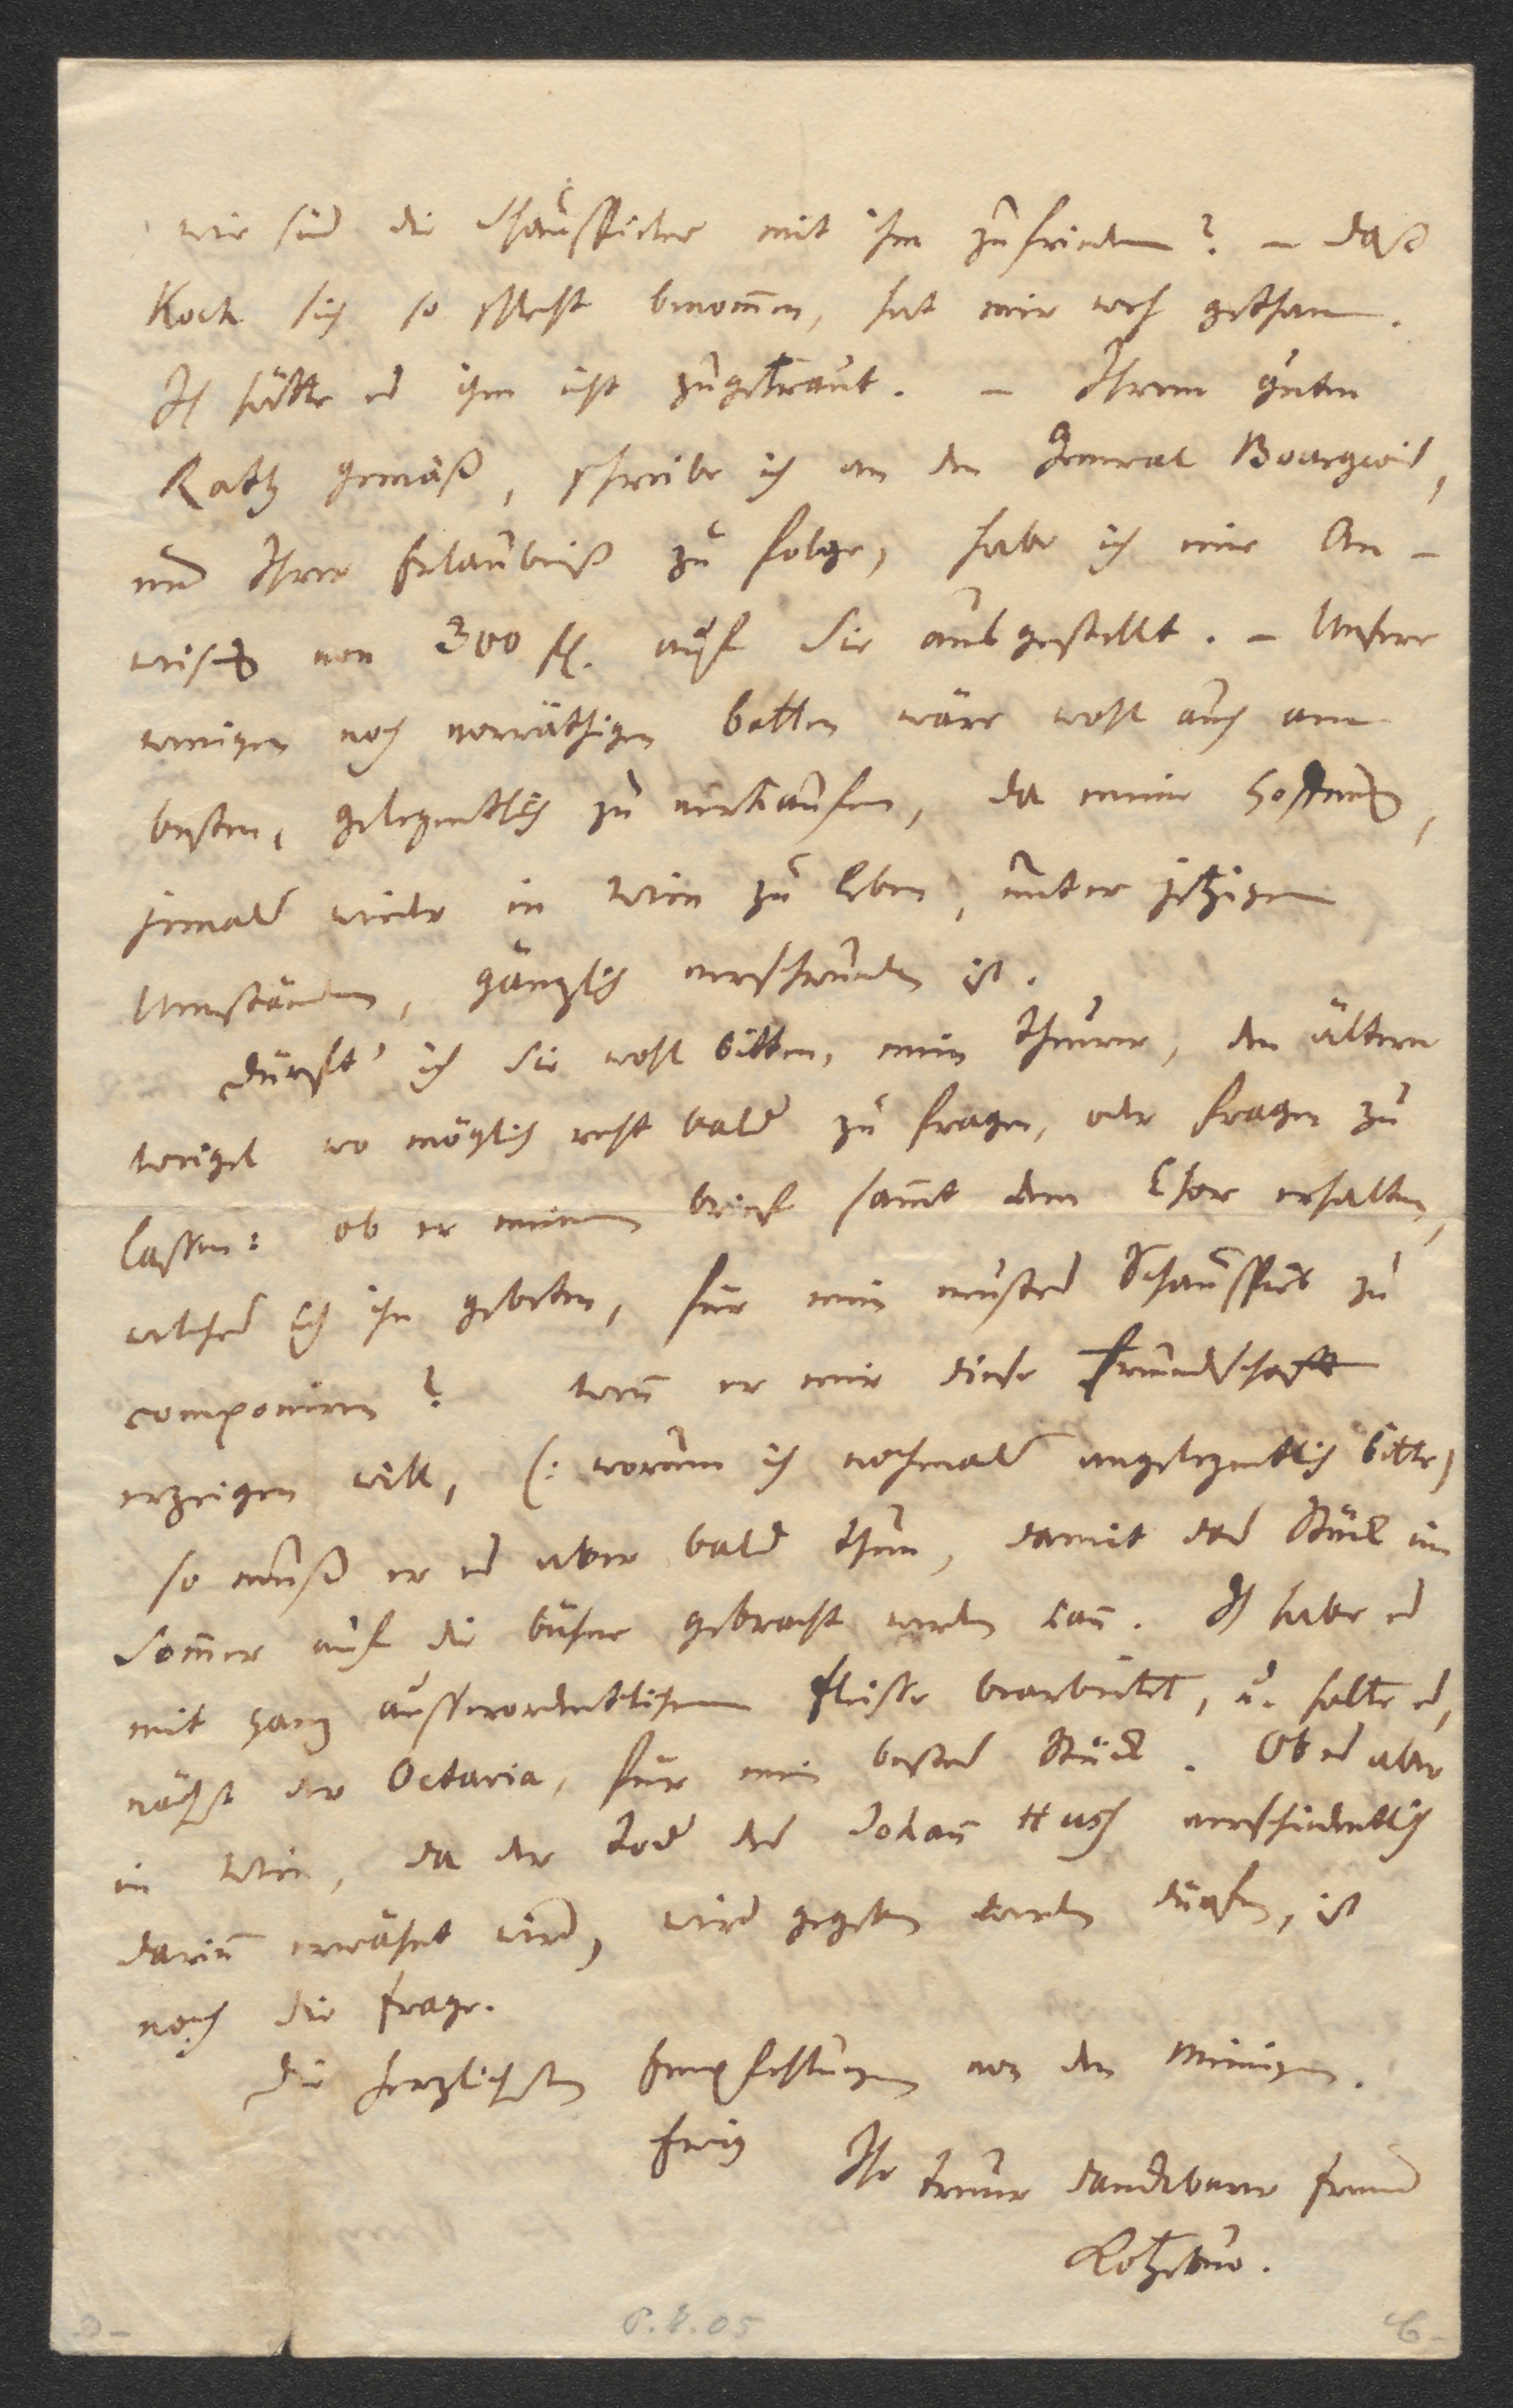 wie sind die Schauspieler mit ihm zufrieden? – Daß
Koch sich so schlecht benom̄en, hat mir weh gethan.
Ich hätte es ihm nicht zugetraut. – Ihrem guten
Rath gemäß, schreibe ich an den General Bourgeois,
und Ihrer Erlaubniß zu folge, habe ich eine An-
weisung von 300 fl. auf Sie ausgestellt. – Unsere
wenigen noch vorräthigen Betten wäre wohl auch am
besten, gelegentlich zu verkaufen, da meine Hoffnung,
jemals wieder in Wien zu leben, unter jetzigen
Umständen, gänzlich verschwunden ist.
Dürft' ich Sie wohl bitten, mein Theurer, den ältern
Weigel wo möglich recht bald zu fragen, oder fragen zu
lassen: ob er meinen Brief sam̄t dem Chor erhalten,
welches ich ihn gebeten, für mein neustes Schauspiel zu
componiren? Wen̄ er mir diese Freundschaft
erzeigen will, (: worum ich nochmals angelegentlich bitte)
so muß er es aber bald thun, damit das Stück im
Som̄er auf die Bühne gebracht werden kan̄. Ich habe es
mit ganz ausserordentlichem Fleisse bearbeitet, u. halte es,
nächst der Octavia, für mein bestes Stück. Ob es aber
in Wien, da der Tod des Johan̄ Huss verschiedentlich
darin̄ erwähnt wird, wird gegeben werden dürfen, ist
noch die Frage.
Die herzlichsten Empfehlungen von den Meinigen.
Ewig Ihr treuer dankbarer Freund
Kotzebue.